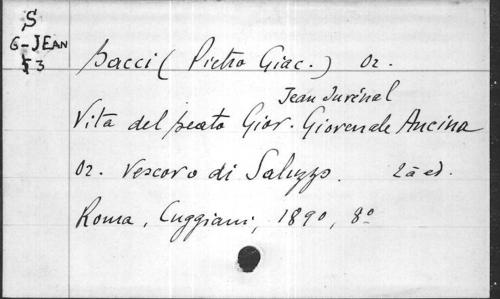 S
G-JEAN
53
Bacci (Pietro Giac.) Or.
Jean Juvénal
Vita del beato Giov. Giovenale Ancina
Or. Vescovo di Saluzzo. 2a ed.
Roma, Cuggiani, 1890, 8º